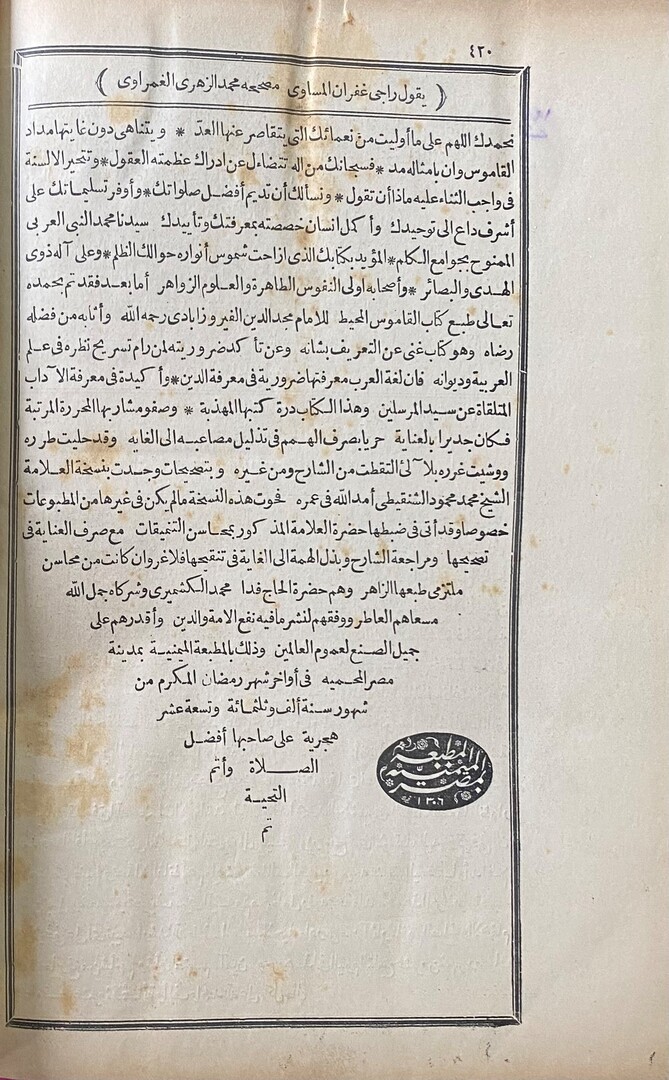 ٤٢٠
﴿ يقول راجى غفران المساوى مصححه محمد الزهرى الغمراوى ﴾
نحمدك اللهم على ما أوليت من نعمائك التى يتقاصر عنها العدّ * ويتناهى دون غايتها مداد
القاموس وان بامثاله مد * فسبحانك من اله تتضاءل عن ادراك عظمته العقول * وتتحير الالسنة
فى واجب الثناء عليه ماذا أن تقول * ونسألك أن تديم أفضل صلواتك * وأوفر تسليماتك على
أشرف داع الى توحيدك وأكمل انسان خصصته بمعرفتك وتأييدك سيدنا محمد النبى العربى
الممنوح بجوامع الكلم * المؤيد بكتابك الذى ازاحت شموس أنواره حوالك الظلم * وعلى آله ذوى
الهدى والبصائر * وأصحابه اولى النفوس الطاهرة والعلوم الزواهر أما بعد فقد تم بحمده
تعالى طبع كتاب القاموس المحيط للامام مجد الدين الفيروزابادى رحمه الله وأثابه من فضله
رضاه وهو كتاب غنى عن التعريف بشانه وعن تأكد ضروريته لمن رام تسريح نظره فى علم
العربية وديوانه فان لغة العرب معرفتها ضرورية فى معرفة الدين * وأكيدة فى معرفة الآداب
المتلقاة عن سيد المرسلين وهذا الكتاب درة كتبها المهذبة * وصفو مشاربها المحررة المرتبة
فكان جديرا بالعناية حريا بصرف الهمم فى تذليل مصاعبه الى الغايه وقد حليت طرره
ووشيت غرره بلآلئ التقطت من الشارح ومن غيره وبتصحيحات وجدت بنسخة العلامة
الشيخ محمد محمود الشنقيطى أمد الله فى عمره فحوت هذه النسخة مالم يكن فى غيرها من المطبوعات
خصوصا وقد أتى فى ضبطها حضرة العلامة المذكور بمحاسن التنميقات مع صرف العناية فى
تصحيحها ومراجعة الشارح وبذل الهمة الى الغاية فى تنقيحها فلا غروان كانت من محاسن
ملتزمى طبعها الزاهر وهم حضرة الحاج فدا محمد الكشميرى وشركاه جمل الله
مسعاهم العاطر ووفقهم لنشر ما فيه نفع الامة والدين وأقدرهم على
جميل الصنع لعموم العالمين وذلك بالمطبعة الميمنية بمدينة
مصر المحميه فى أواخر شهر رمضان المكرم من
شهور سنة ألف وثلثمائة وتسعة عشر
هجرية على صاحبها أفضل
الصلاة وأتم
التحية
تم
المطبعة
الميمنية
بمصر
١٣٠٦